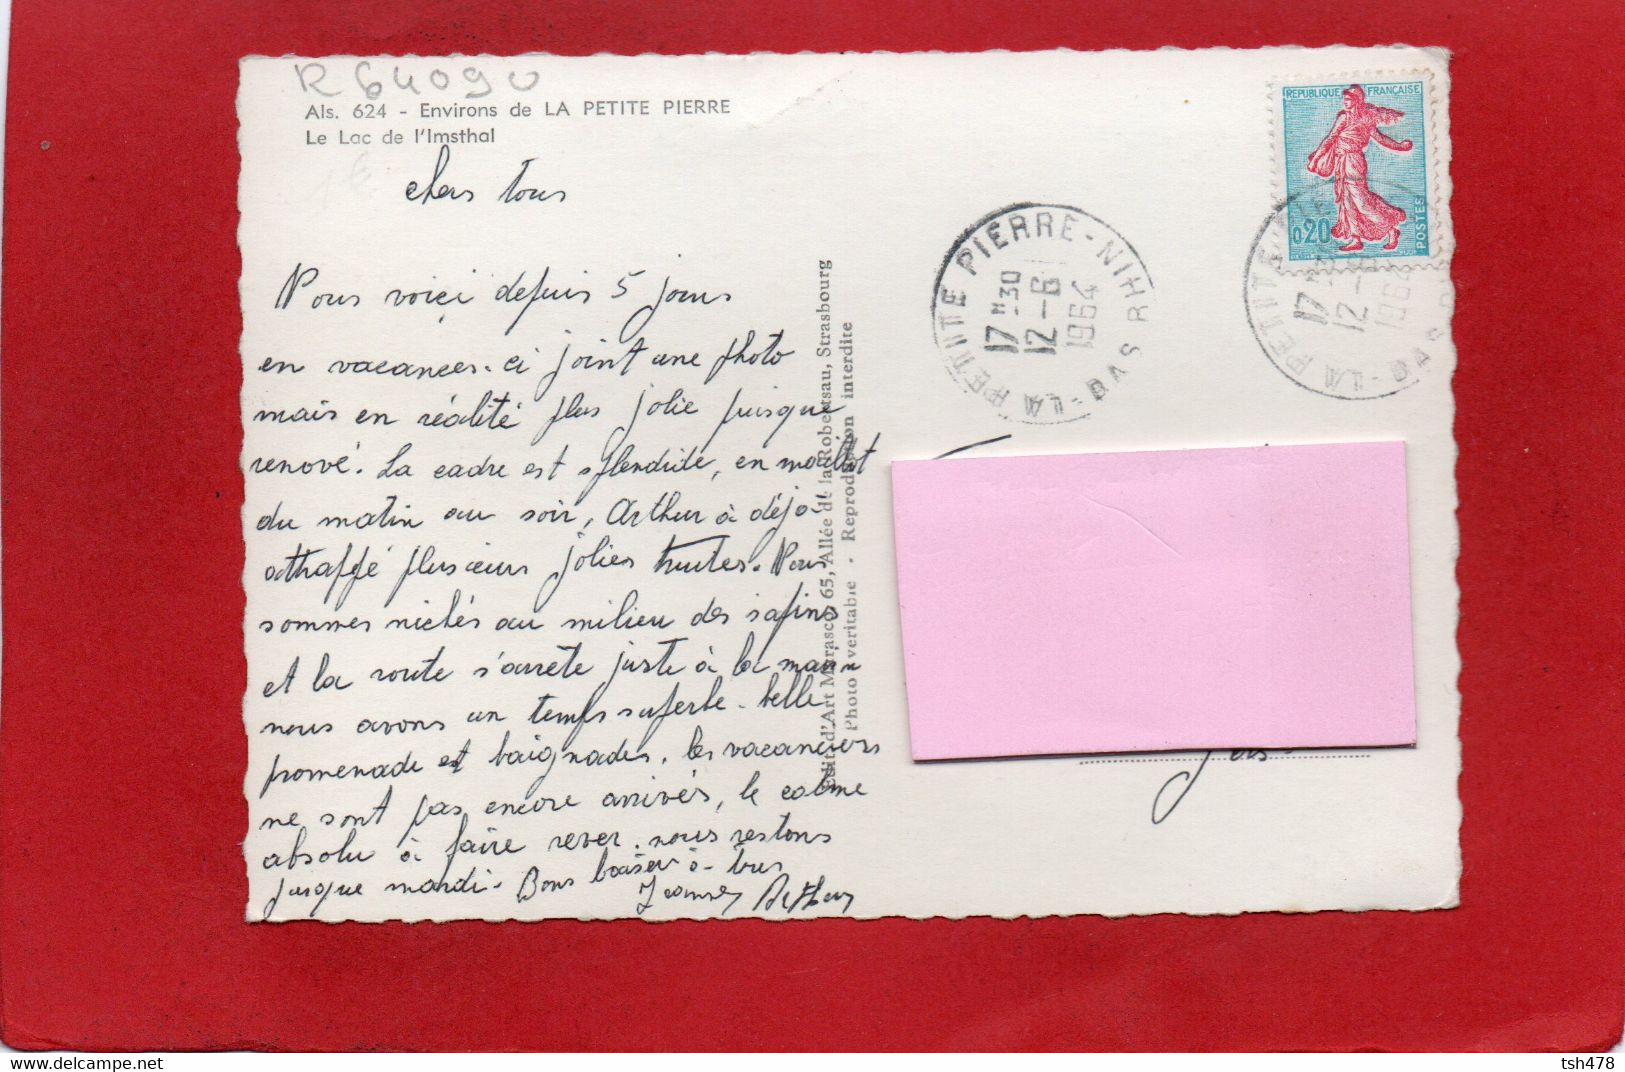 R 64090
Als. 624 - Environs de LA PETITE PIERRE
Le Lac de l'Imsthal
chers tous
Nous voiçi depuis 5 jours
en vacances. ci joint une photo
mais en réalité plus jolie puisque
renové. La cadre est splendide, en maillot
du matin au soir, Arthur à déjà
atthappé plusieurs jolies truites. Nous
sommes nichés au milieu des sapins
et la route s'arrete juste à la maison
nous avons un temps superbe. belle
promenade et baignades. les vacanciers
ne sont pas encore arrivés, le calme
absolu à faire rever. nous restons
jusque mardi. Bons baiser à tous
Jeanne Arthur
Edit. d'Art Marasco, 65, Allée de la Robertsau, Strasbourg
Photo véritable - Reproduction interdite
REPUBLIQUE FRANÇAISE
0,20
POSTES
LA PETITE PIERRE - NIH
BAS R
17 H 30
12 - 6
1964
LA PETITE
BAS
17 H
12 -
196
tsh478
delcampe.net